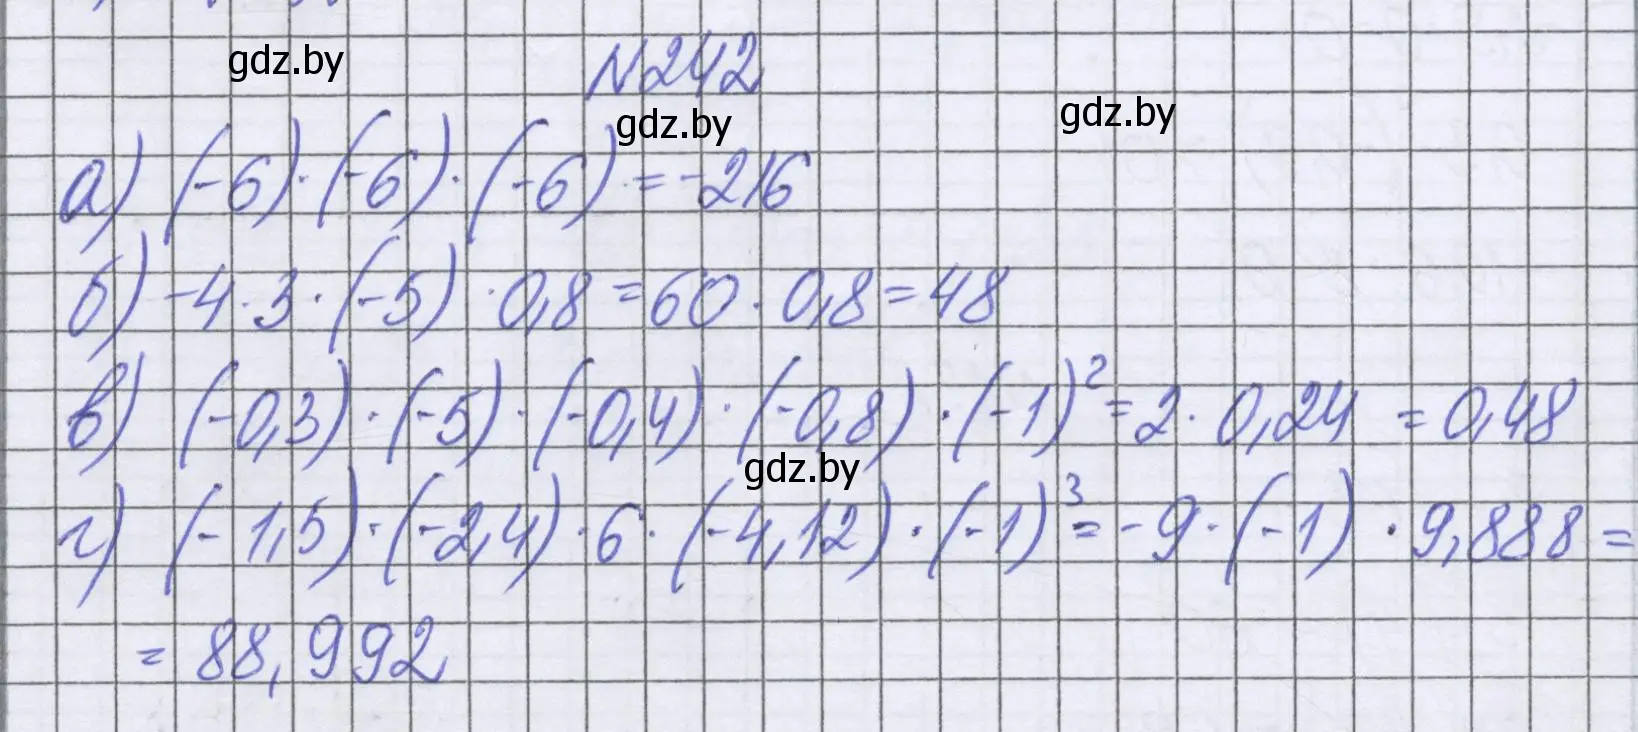 gdz.by
N242
gdz.by
gdz.by
а) (-6)·(-6)·(-6) = -216
б) -4·3·(-5)·0,8 = 60·0,8 = 48
в) (-0,3)·(-5)·(-0,4)·(-0,8)·(-1)² = 2·0,24 = 0,48
gdz.by
г) (-1,5)·(-2,4)·6·(-4,12)·(-1)³ = -9·(-1)·9,888 =
= 88,992